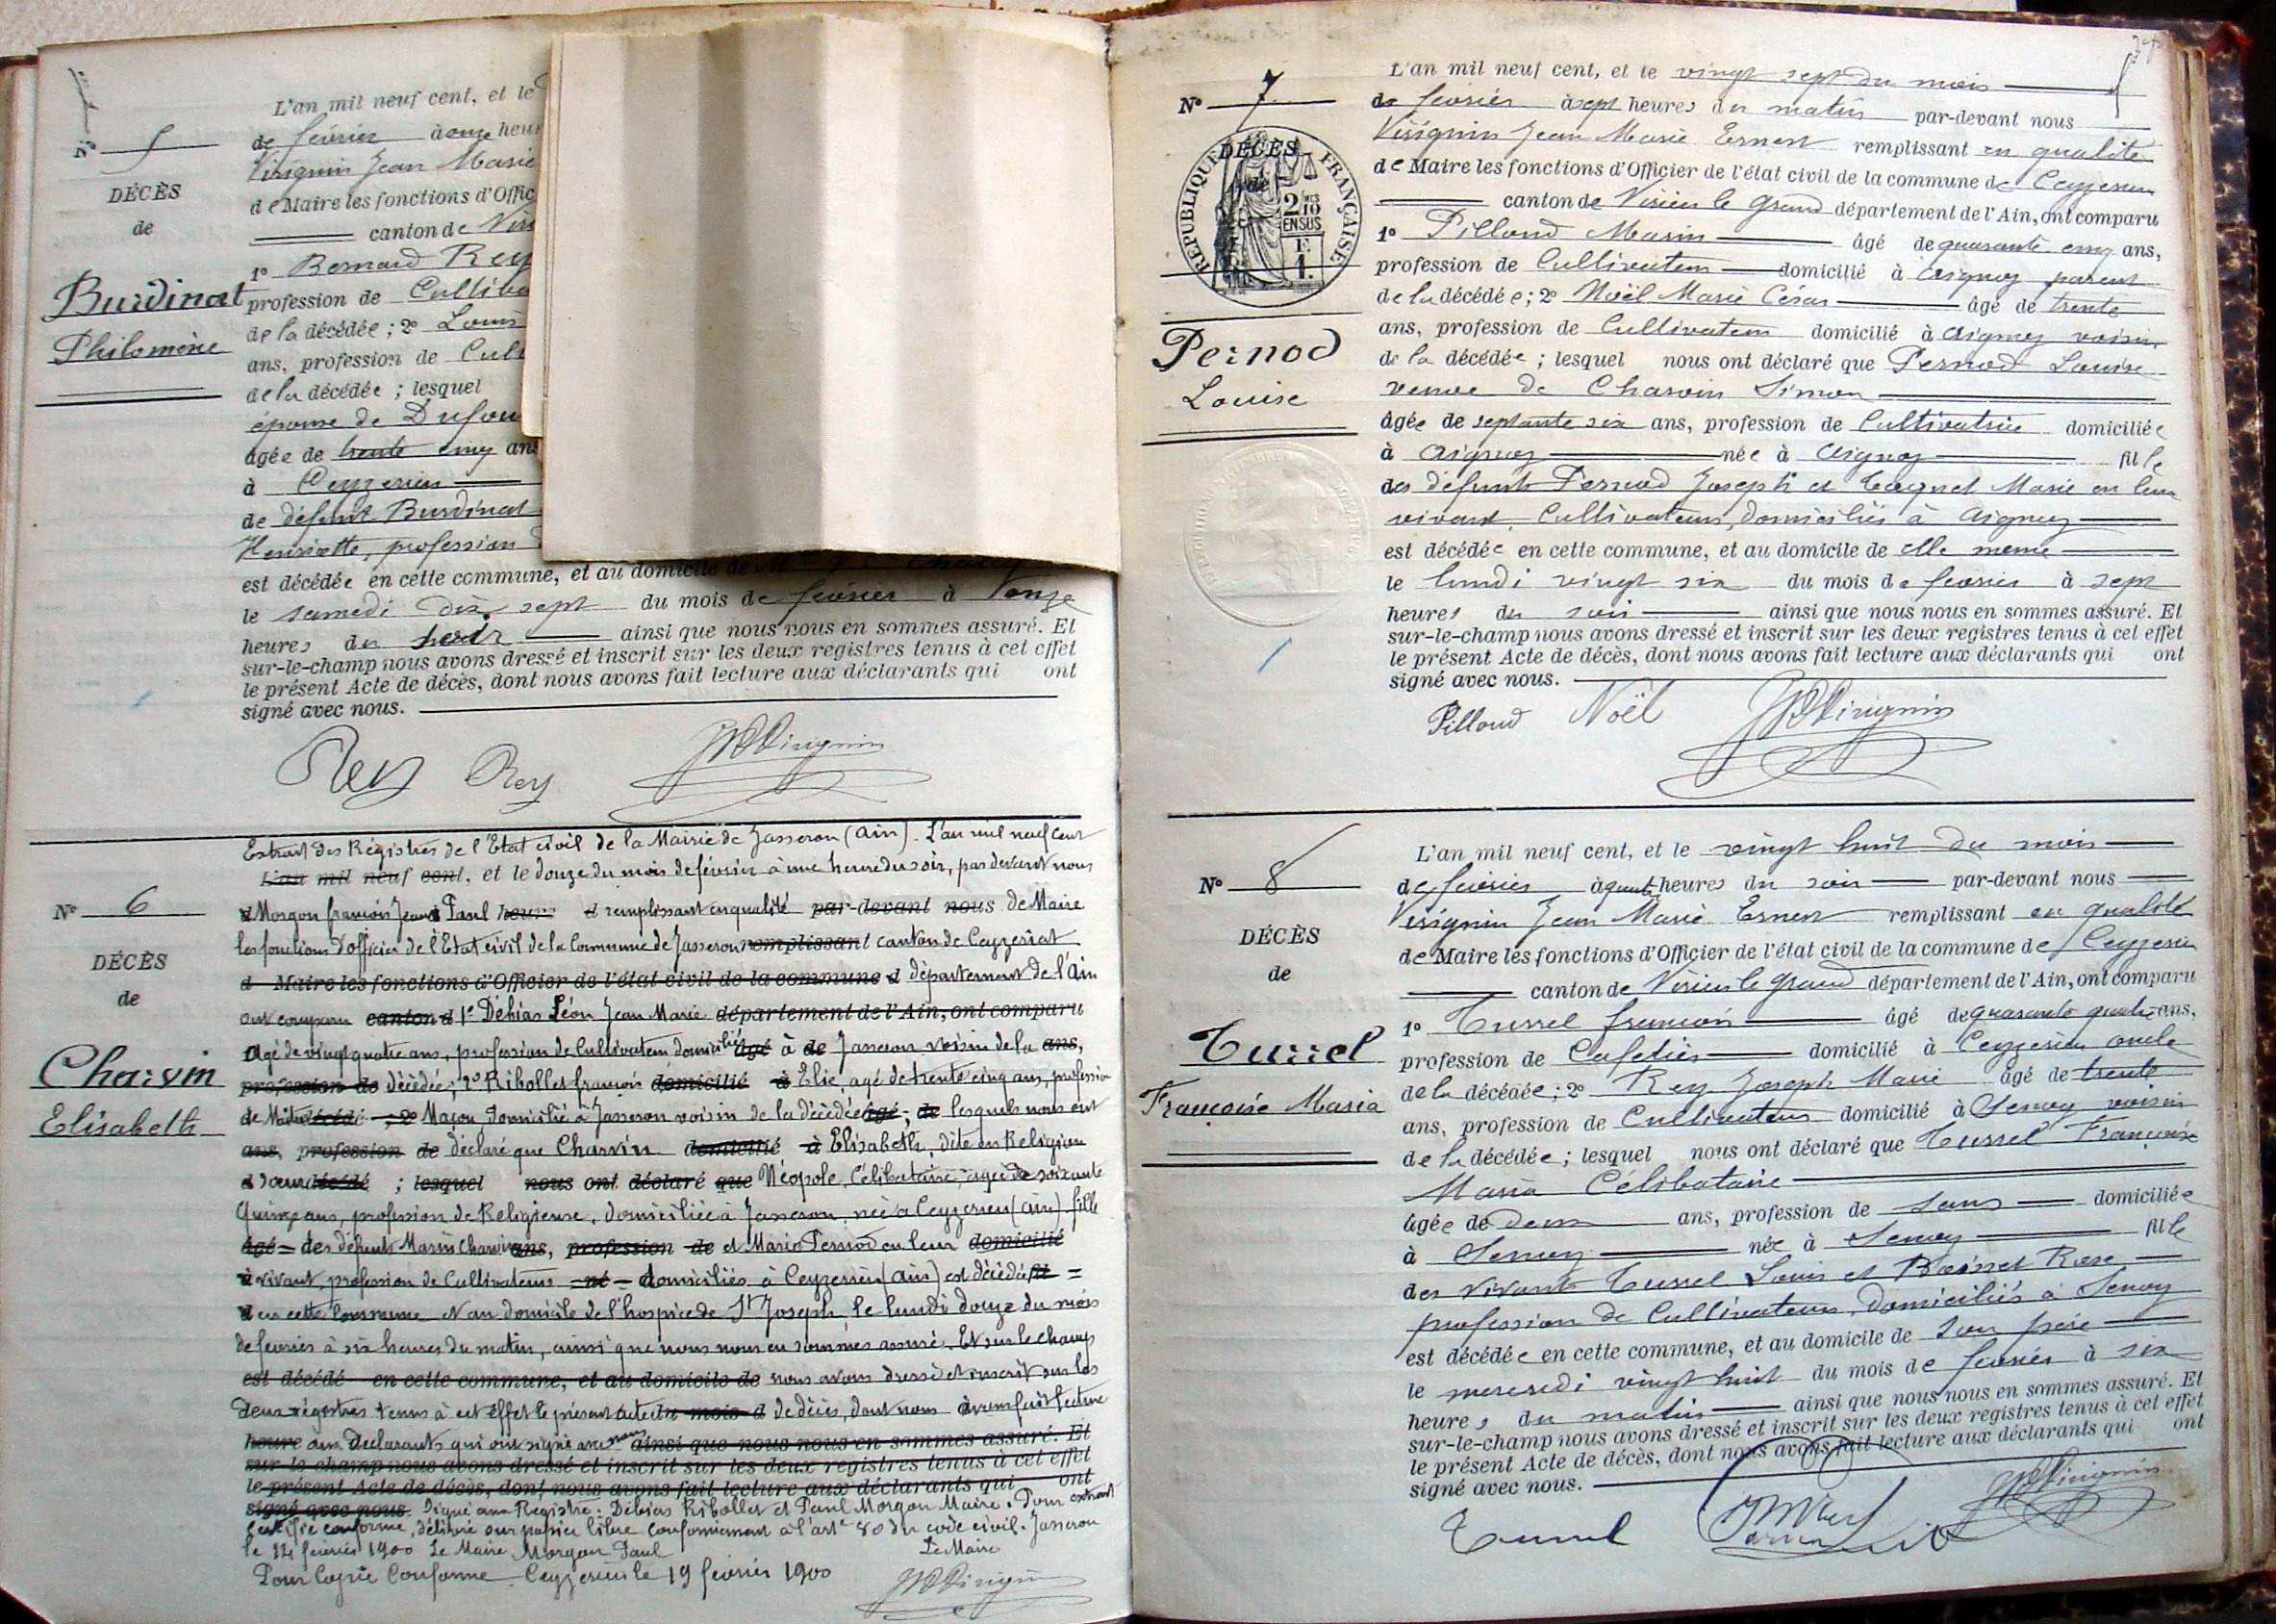 N° 5
DÉCÈS
de
Burdinat
Philomène
L'an mil neuf cent, et le
de février à onze heu
Virignin Jean Marie
de Maire les fonctions d'Offic
canton de Viri
1° Bernard Rey
profession de Cultiva
de la décédée ; 2° Louis
ans, profession de Cult
de la décédée ; lesquel
épouse de Dufou
âgée de trente cinq ans
à Ceyzerieu
de défunt Burdinat
Henriette, profession
est décédée en cette commune, et au domicile de
le samedi dix sept du mois de février à onze
heures du soir ainsi que nous nous en sommes assuré. Et
sur-le-champ nous avons dressé et inscrit sur les deux registres tenus à cet effet
le présent Acte de décès, dont nous avons fait lecture aux déclarants qui ont
signé avec nous.
Rey Rey JMVirignin
N° 6
DÉCÈS
de
Charvin
Elisabeth
Extrait des Registres de l'Etat civil de la Mairie de Jasseron (Ain). L'an mil neuf cent
L'an mil neuf cent, et le douze du mois de février à une heure du soir, par devant nous
d Morgon françois Jean Paul heure d remplissant en qualité par-devant nous de Maire
les fonctions d'officier de l'Etat civil de la Commune de Jasseron remplissant canton de Ceyzeriat
d Maire les fonctions d'Officier de l'état civil de la commune d département de l'Ain
ont comparu canton d 1° Débias Léon Jean Marie département de l'Ain, ont comparu
agé de vingt quatre ans, profession de Cultivateur domicilié âgé à de Jasseron voisin de la ans,
profession de décédée; 2° Ribollet françois domicilié à Elie, agé de trente cinq ans, profession
de décédé ; 2° Maçon domicilié à Jasseron voisin de la décédée âgé de lesquels nous ont
ans, profession de déclaré que Charvin domicilié à Elisabeth, dite en Religion
d sœur décédé ; lesquel nous ont déclaré que Néopole, Célibataire, agée de soixante
Quinze ans, profession de Religieuse, domiciliée à Jasseron, née à Ceyzerieu (Ain) fille
âgé des défunts Marin Charvin ans, profession de et Marie Pernod en leur domicilié
à vivant, profession de Cultivateurs né domiciliés à Ceyzerieu (Ain) est décédée fil
d en cette Commune et au domicile de l'hospice de St Joseph, le lundi douze du mois
de février à six heures du matin, ainsi que nous nous en sommes assuré. Et sur le champ
est décédé en cette commune, et au domicile de nous avons dressé et inscrit sur les
deux régistres tenus à cet effet le présent acte du mois d de décès, dont nous avons fait lecture
heure aux Déclarants qui ont signé avec nous ainsi que nous nous en sommes assuré. Et
sur-le-champ nous avons dressé et inscrit sur les deux registres tenus à cet effet
le présent Acte de décès, dont nous avons fait lecture aux déclarants qui ont
signé avec nous. Signé aux Registres: Débias Ribollet et Paul Morgon Maire. Pour extrait
certifié conforme, délivré sur papier libre conformément à l'art 80 du code civil. Jasseron
le 12 février 1900 Le Maire Morgon Paul Le Maire
Pour Copie Conforme Ceyzerieu le 19 février 1900
JMVirignin
N° 7
RÉPUBLIQUE FRANÇAISE
DÉCÈS
de
2/10 EN SUS
F. 1.
Pernod
Louise
L'an mil neuf cent, et le vingt sept du mois
de février à sept heures du matin par-devant nous
Virignin Jean Marie Ernest remplissant en qualité
de Maire les fonctions d'Officier de l'état civil de la commune de Ceyzerieu
canton de Virieu le Grand département de l'Ain, ont comparu
1° Pilloud Marin âgé de quarante cinq ans,
profession de Cultivateur domicilié à Aignoz parent
de la décédée ; 2° Noël Marie César âgé de trente
ans, profession de Cultivateur domicilié à Aignoz voisin
de la décédée ; lesquel nous ont déclaré que Pernod Louise
veuve de Charvin Simon
âgée de septante six ans, profession de Cultivatrice domiciliée
à Aignoz née à Aignoz fille
des défunts Pernod Joseph et Marie en leur
vivant, Cultivateurs, domiciliés à Aignoz
est décédée en cette commune, et au domicile de elle meme
le lundi vingt six du mois de février à sept
heures du soir ainsi que nous nous en sommes assuré. Et
sur-le-champ nous avons dressé et inscrit sur les deux registres tenus à cet effet
le présent Acte de décès, dont nous avons fait lecture aux déclarants qui ont
signé avec nous.
Pilloud Noël JMVirignin
N° 8
DÉCÈS
de
Turrel
Françoise Maria
L'an mil neuf cent, et le vingt huit du mois
de février à quatre heures du soir par-devant nous
Virignin Jean Marie Ernest remplissant en qualité
de Maire les fonctions d'Officier de l'état civil de la commune de Ceyzerieu
canton de Virieu le Grand département de l'Ain, ont comparu
1° Turrel françois âgé de quarante quatre ans,
profession de Cafetier domicilié à Ceyzerieu oncle
de la décédée ; 2° Rey Joseph Marie âgé de trente
ans, profession de Cultivateur domicilié à Senoy voisin
de la décédée ; lesquel nous ont déclaré que Turrel Françoise
Maria Célibataire
âgée de deux ans, profession de sans domiciliée
à Senoy née à Senoy fille
des vivants Turrel Louis et Rose
profession de Cultivateurs, domiciliés à Senoy
est décédée en cette commune, et au domicile de son père
le mercredi vingt huit du mois de février à six
heures du matin ainsi que nous nous en sommes assuré. Et
sur-le-champ nous avons dressé et inscrit sur les deux registres tenus à cet effet
le présent Acte de décès, dont nous avons fait lecture aux déclarants qui ont
signé avec nous.
Turrel JMVirignin